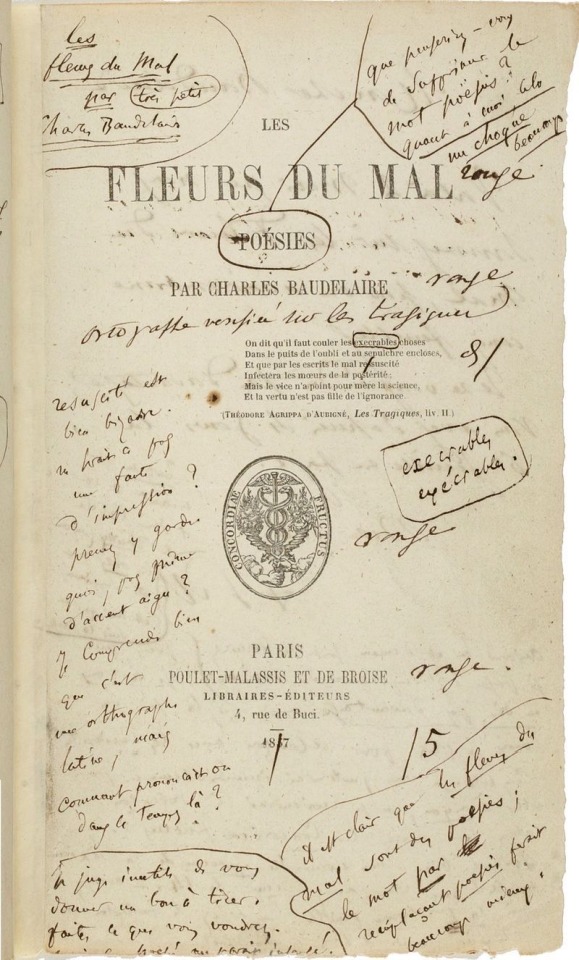 les
fleurs du Mal
par très petit
Charles Baudelaire
que penseriez-vous
de supprimer le
mot poésies ?
quant à moi, cela
me choque
beaucoup
rouge.
LES
FLEURS DU MAL
POÉSIES
PAR CHARLES BAUDELAIRE
rouge
sur les tragiques
On dit qu'il faut couler les execrables choses
Dans le puits de l'oubli et au sepulchre encloses,
Et que par les escrits le mal resuscité
Infectera les mœurs de la postérité;
Mais le vice n'a point pour mère la science,
Et la vertu n'est pas fille de l'ignorance.
(THÉODORE AGRIPPA D'AUBIGNÉ, Les Tragiques, liv. II.)
resuscité est
bien bizarre.
ne serait-ce pas
une faute
d'impression ?
prenez y garde.
quoi, pas même
d'accent aigu ?
Je comprends bien
que c'est
une orthographe
latine, mais
comment prononçait-on
dans le temps là ?
execrables
exécrables.
CONCORDIAE FRUCTUS
rouge
PARIS
POULET-MALASSIS ET DE BROISE
rouge.
LIBRAIRES-ÉDITEURS
4, rue de Buci.
1857
/5
il est clair que les fleurs du
mal sont des poésies;
le mot par
remplaçant poésies ferait
beaucoup mieux.
Je juge inutile de vous
donner un bon à tirer.
faites ce que vous voudrez.